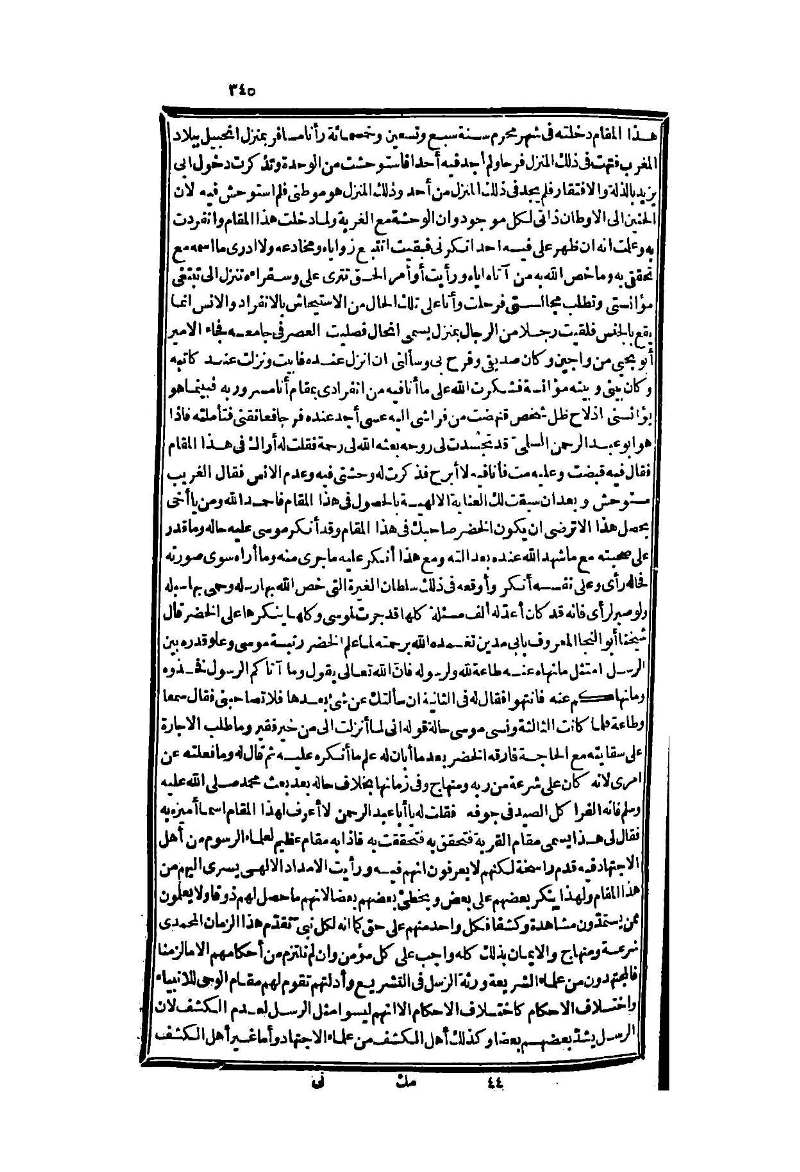 ٣٤٥
هذا المقام دخلته فى شهر محرم سنة سبع وتسعين وخمسمائة وأنا مسافر بمنزل انجيل ببلاد
المغرب فتهت فى ذلك المنزل فرحا ولم أجد فيه أحدا فاستوحشت من الوحدة وتذكرت دخول ابى
يزيد بالذلة والافتقار فلم يجد فى ذلك المنزل من أحد وذلك المنزل هو موطنى فلم استوحش فيه لان
الحنين الى الاوطان ذاتى لكل موجود وان الوحشة مع الغربة ولما دخلت هذا المقام وانفردت
به وعلمت انه ان ظهر على فيه احد انكرنى فبقيت اتتبع زواياه ومخادعه ولا ادرى ما اسمه مع
تحققى به وما خص الله به من آتاه اياه ورأيت أوامر الحق تترى على وسفراءه تنزل الى تبتغى
مؤانستى وتطلب مجالستى فرحلت وأنا على تلك الحال من الاستيحاش بالانفراد والانس انما
يقع بالجنس فلقيت رجلا من الرجال بمنزل يسمى انحال فصليت العصر فى جامعه فجاء الامير
أبو يحيى بن واجين وكان صديقى وفرح بى وسألنى ان انزل عنده فابيت ونزلت عند كاتبه
وكان بينى وبينه مؤانسة فشكرت الله على ما أنا فيه من انفرادى بمقام أنا مسرور به فبينما هو
يؤانسنى اذ لاح ظل شخص فنهضت من فراشى اليه عسى أجد عنده فرجا فعانقنى فتأملته فاذا
هو ابو عبد الرحمن السلمى قد تجسدت لى روحه بعثه الله لى رحمة فقلت له أراك فى هذا المقام
فقال فيه قبضت وعليه مت فأنا فيه لا أبرح فذكرت له وحشتى فيه وعدم الانس فقال الغريب
مستوحش وبعد ان سبقت لك العناية الالهية بالحصول فى هذا المقام فاحمد الله ومن يا أخى
يحصل هذا الا ترضى ان يكون الخضر صاحبك فى هذا المقام وقد أنكر موسى عليه حاله وما قدر
على صحبته مع ما شهد الله عنده بعدالته ومع هذا أنكر عليه ما جرى منه وما أراه سوى صورته
فحاله رأى وعلى نفسه أنكر وأوقعه فى ذلك سلطان الغيرة التى خص الله بها رسله وحمى بها سبله
ولو صبر لرأى فانه قد كان أعد له ألف مسئلة كلها قد جرت لموسى وكلها ينكرها على الخضر قال
شيخنا أبو النجا المعروف بابى مدين تغمده الله برحمته لما علم الخضر رتبة موسى وعلو قدره بين
الرسل امتثل ما نهاه عنه طاعة لله ولرسوله فان الله تعالى يقول وما آتاكم الرسول فخذوه
وما نهاكم عنه فانتهوا فقال له فى الثانية ان سألتك عن شئ بعدها فلا تصاحبنى فقال سمعا
وطاعة فلما كانت الثالثة ونسى موسى حالة قوله انى لما أنزلت الى من خير فقير وما طلب الاجارة
على سقايته مع الحاجة فارقه الخضر بعد ما أبان له علم ما أنكره عليه ثم قال له وما فعلته عن
امرى لانه كان على شرعة من ربه ومنهاج وفى زمانها بخلاف حاله بعد بعث محمد صلى الله عليه
وسلم فانه الفرا كل الصيد فى جوفه فقلت له يا أبا عبد الرحمن لا أعرف لهذا المقام اسما أميزه به
فقال لى هذا يسمى مقام القربة فتحقق به فتحققت به فاذا به مقام عظيم لعلماء الرسوم من أهل
الاجتهاد فيه قدم راسخة لكنهم لا يعرفون انهم فيه ورأيت الامداد الالهى يسرى اليهم من
هذا المقام ولهذا ينكر بعضهم على بعض ويخطئ بعضهم بعضا لانهم ما حصل لهم ذوقا ولا يعلمون
ممن يستمدون مشاهدة وكشفا فكل واحد منهم على حق كما انه لكل نبى تقدم هذا الزمان المحمدى
شرعة ومنهاج والايمان بذلك كله واجب على كل مؤمن وان لم نلتزم من أحكامهم الا ما لزمنا
فالمجتهدون من علماء الشريعة ورثة الرسل فى التشريع وأدلتهم تقوم لهم مقام الوحى للانبياء
واختلاف الاحكام كاختلاف الاحكام الا انهم ليسوا مثل الرسل لعدم الكشف لان
الرسل يشد بعضهم بعضا وكذلك أهل الكشف من علماء الاجتهاد وأما غير أهل الكشف
٤٤ مك نى